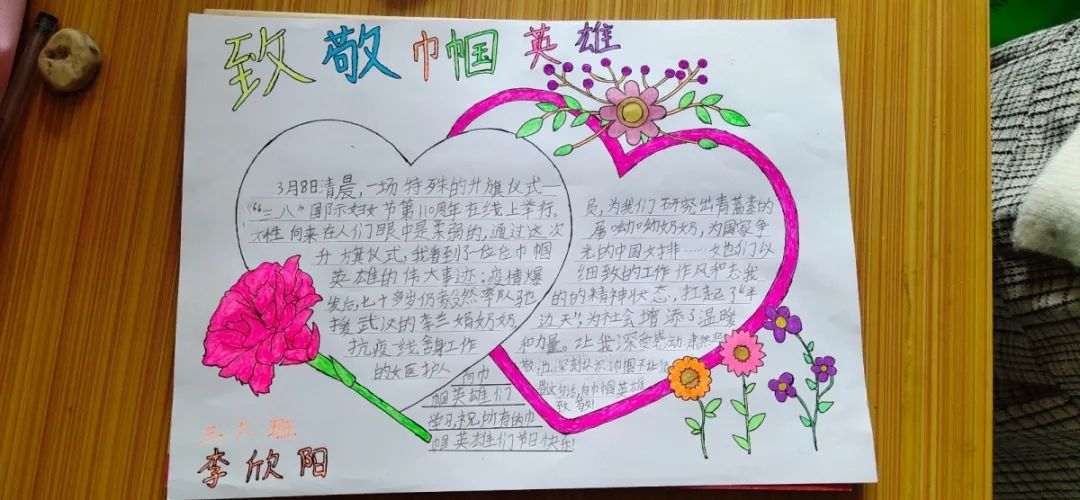 致敬巾帼英雄
3月8日清晨,一场特殊的升旗仪式—
"“三八”国际妇女节第110周年在线上举行。
女性向来在人们眼中是柔弱的,通过这次
升旗仪式,我看到了一位位巾帼
英雄的伟大事迹:疫情爆
发后,七十多岁仍毅然率队驰
援武汉的李兰娟奶奶,
抗疫一线舍身工作
的女医护人
员,为我们研究出青蒿素的
屠呦呦奶奶,为国家争
光的中国女排……她们以
细致的工作作风和忘我
的的精神状态,扛起了“半
边天”,为社会增添了温暖
和力量。让我深受感动,肃然起
敬,也深刻认识巾帼不让须
向巾帼英雄
致敬!
向巾
帼英雄们
学习,祝所有的巾
帼英雄们节日快乐!
三六班
李欣阳